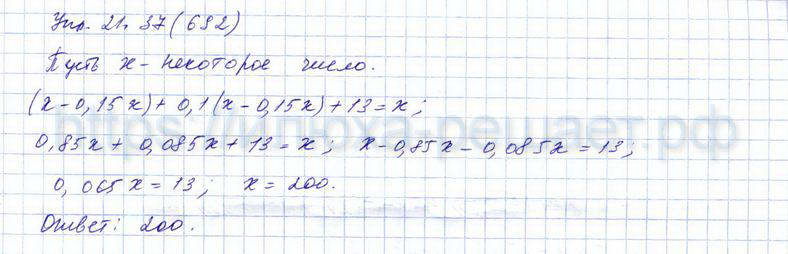 Упр. 21.37(692)
Пусть x - некоторое число.
(x-0,15x)+0,1(x-0,15x)+13=x;
https://квтюха-решает.рф
0,85x+0,085x+13=x; x-0,85x-0,085x=13;
0,065x=13; x=200.
Ответ: 200.